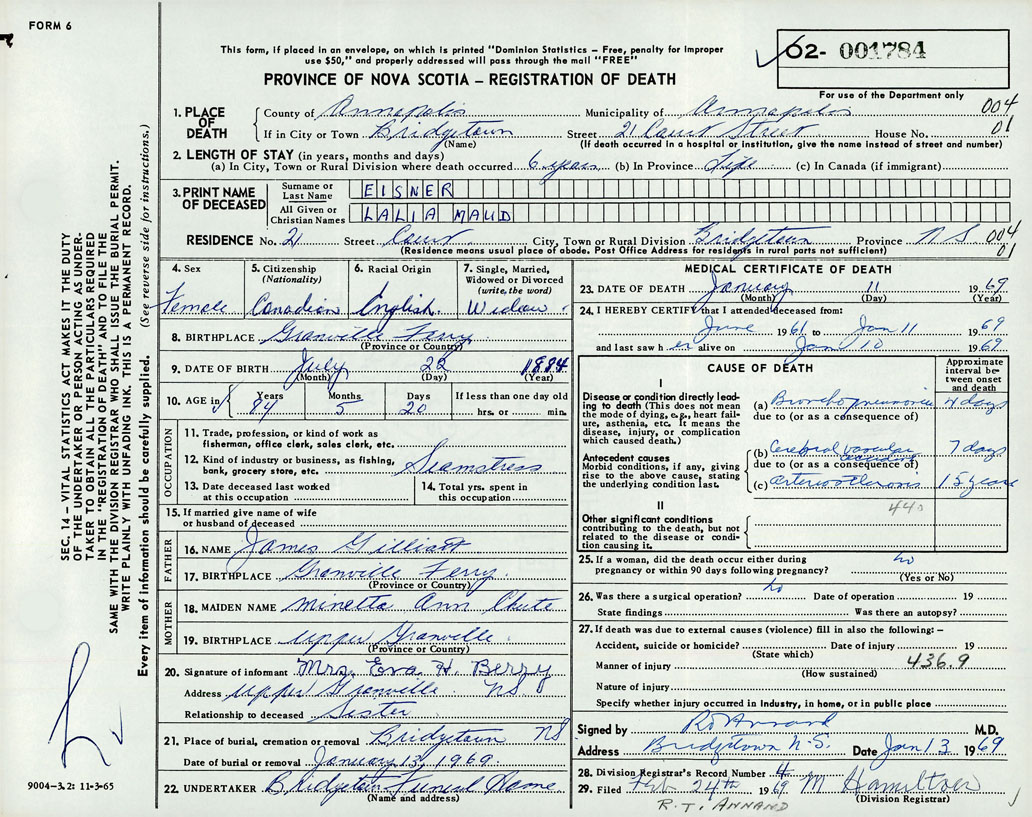 FORM 6
This form, if placed in an envelope, on which is printed "Dominion Statistics – Free, penalty for improper
use $50," and properly addressed will pass through the mail "FREE"
PROVINCE OF NOVA SCOTIA – REGISTRATION OF DEATH
02- 001784
For use of the Department only
1. PLACE OF DEATH
County of Annapolis Municipality of Annapolis 004
If in City or Town Bridgetown Street 21 Court Street House No. 01
(Name) (If death occurred in a hospital or institution, give the name instead of street and number)
2. LENGTH OF STAY (in years, months and days)
(a) In City, Town or Rural Division where death occurred 6 years (b) In Province Life (c) In Canada (if immigrant)
3. PRINT NAME OF DECEASED
Surname or Last Name EISNER
All Given or Christian Names LALIA MAUD
RESIDENCE No. 21 Street Court City, Town or Rural Division Bridgetown Province NS 004
(Residence means usual place of abode. Post Office Address for residents in rural parts not sufficient) 01
4. Sex
Female
5. Citizenship (Nationality)
Canadian
6. Racial Origin
English
7. Single, Married, Widowed or Divorced (write the word)
Widow
8. BIRTHPLACE Granville Ferry
(Province or Country)
9. DATE OF BIRTH July 22 1884
(Month) (Day) (Year)
10. AGE in Years Months Days If less than one day old
84 5 20 hrs. or min.
OCCUPATION
11. Trade, profession, or kind of work as
fisherman, office clerk, sales clerk, etc.
12. Kind of industry or business, as fishing,
bank, grocery store, etc. Seamstress
13. Date deceased last worked
at this occupation
14. Total yrs. spent in
this occupation
15. If married give name of wife
or husband of deceased
FATHER
16. NAME James Gilliatt
17. BIRTHPLACE Granville Ferry
(Province or Country)
MOTHER
18. MAIDEN NAME Minetta Ann Chute
19. BIRTHPLACE Upper Granville
(Province or Country)
20. Signature of informant Mrs. Eva H. Berry
Address Upper Granville NS
Relationship to deceased Sister
21. Place of burial, cremation or removal Bridgetown NS
Date of burial or removal January 13, 1969.
22. UNDERTAKER Bridgetown Funeral Home
(Name and address)
MEDICAL CERTIFICATE OF DEATH
23. DATE OF DEATH January 11 1969
(Month) (Day) (Year)
24. I HEREBY CERTIFY that I attended deceased from:
June 1961 to Jan 11 1969
and last saw her alive on Jan 10 1969
CAUSE OF DEATH
Approximate interval between onset and death
I
Disease or condition directly leading to death (This does not mean the mode of dying, e.g., heart failure, asthenia, etc. It means the disease, injury, or complication which caused death.)
(a) Bronchopneumonia 4 days
due to (or as a consequence of)
Antecedent causes
Morbid conditions, if any, giving rise to the above cause, stating the underlying condition last.
(b) Cerebral vascular 7 days
due to (or as a consequence of)
(c) arteriosclerosis 15 years
440
II
Other significant conditions
contributing to the death, but not related to the disease or condition causing it.
25. If a woman, did the death occur either during
pregnancy or within 90 days following pregnancy? no
(Yes or No)
26. Was there a surgical operation? no Date of operation 19
State findings Was there an autopsy?
27. If death was due to external causes (violence) fill in also the following: –
Accident, suicide or homicide? Date of injury 19
(State which)
Manner of injury 436.9
(How sustained)
Nature of injury
Specify whether injury occurred in industry, in home, or in public place
Signed by R T Annand M.D.
Address Bridgetown N.S. Date Jan 13 1969
28. Division Registrar's Record Number 4
29. Filed Feb 24th 1969 M Hamilton
(Division Registrar)
R. T. ANNAND
SEC. 14 – VITAL STATISTICS ACT MAKES IT THE DUTY
OF THE UNDERTAKER OR PERSON ACTING AS UNDER-
TAKER TO OBTAIN ALL THE PARTICULARS REQUIRED
IN THE "REGISTRATION OF DEATH" AND TO FILE THE
SAME WITH THE DIVISION REGISTRAR WHO SHALL ISSUE THE BURIAL PERMIT.
WRITE PLAINLY WITH UNFADING INK. THIS IS A PERMANENT RECORD.
Every item of information should be carefully supplied. (See reverse side for instructions.)
9004-3.2: 11-3-65